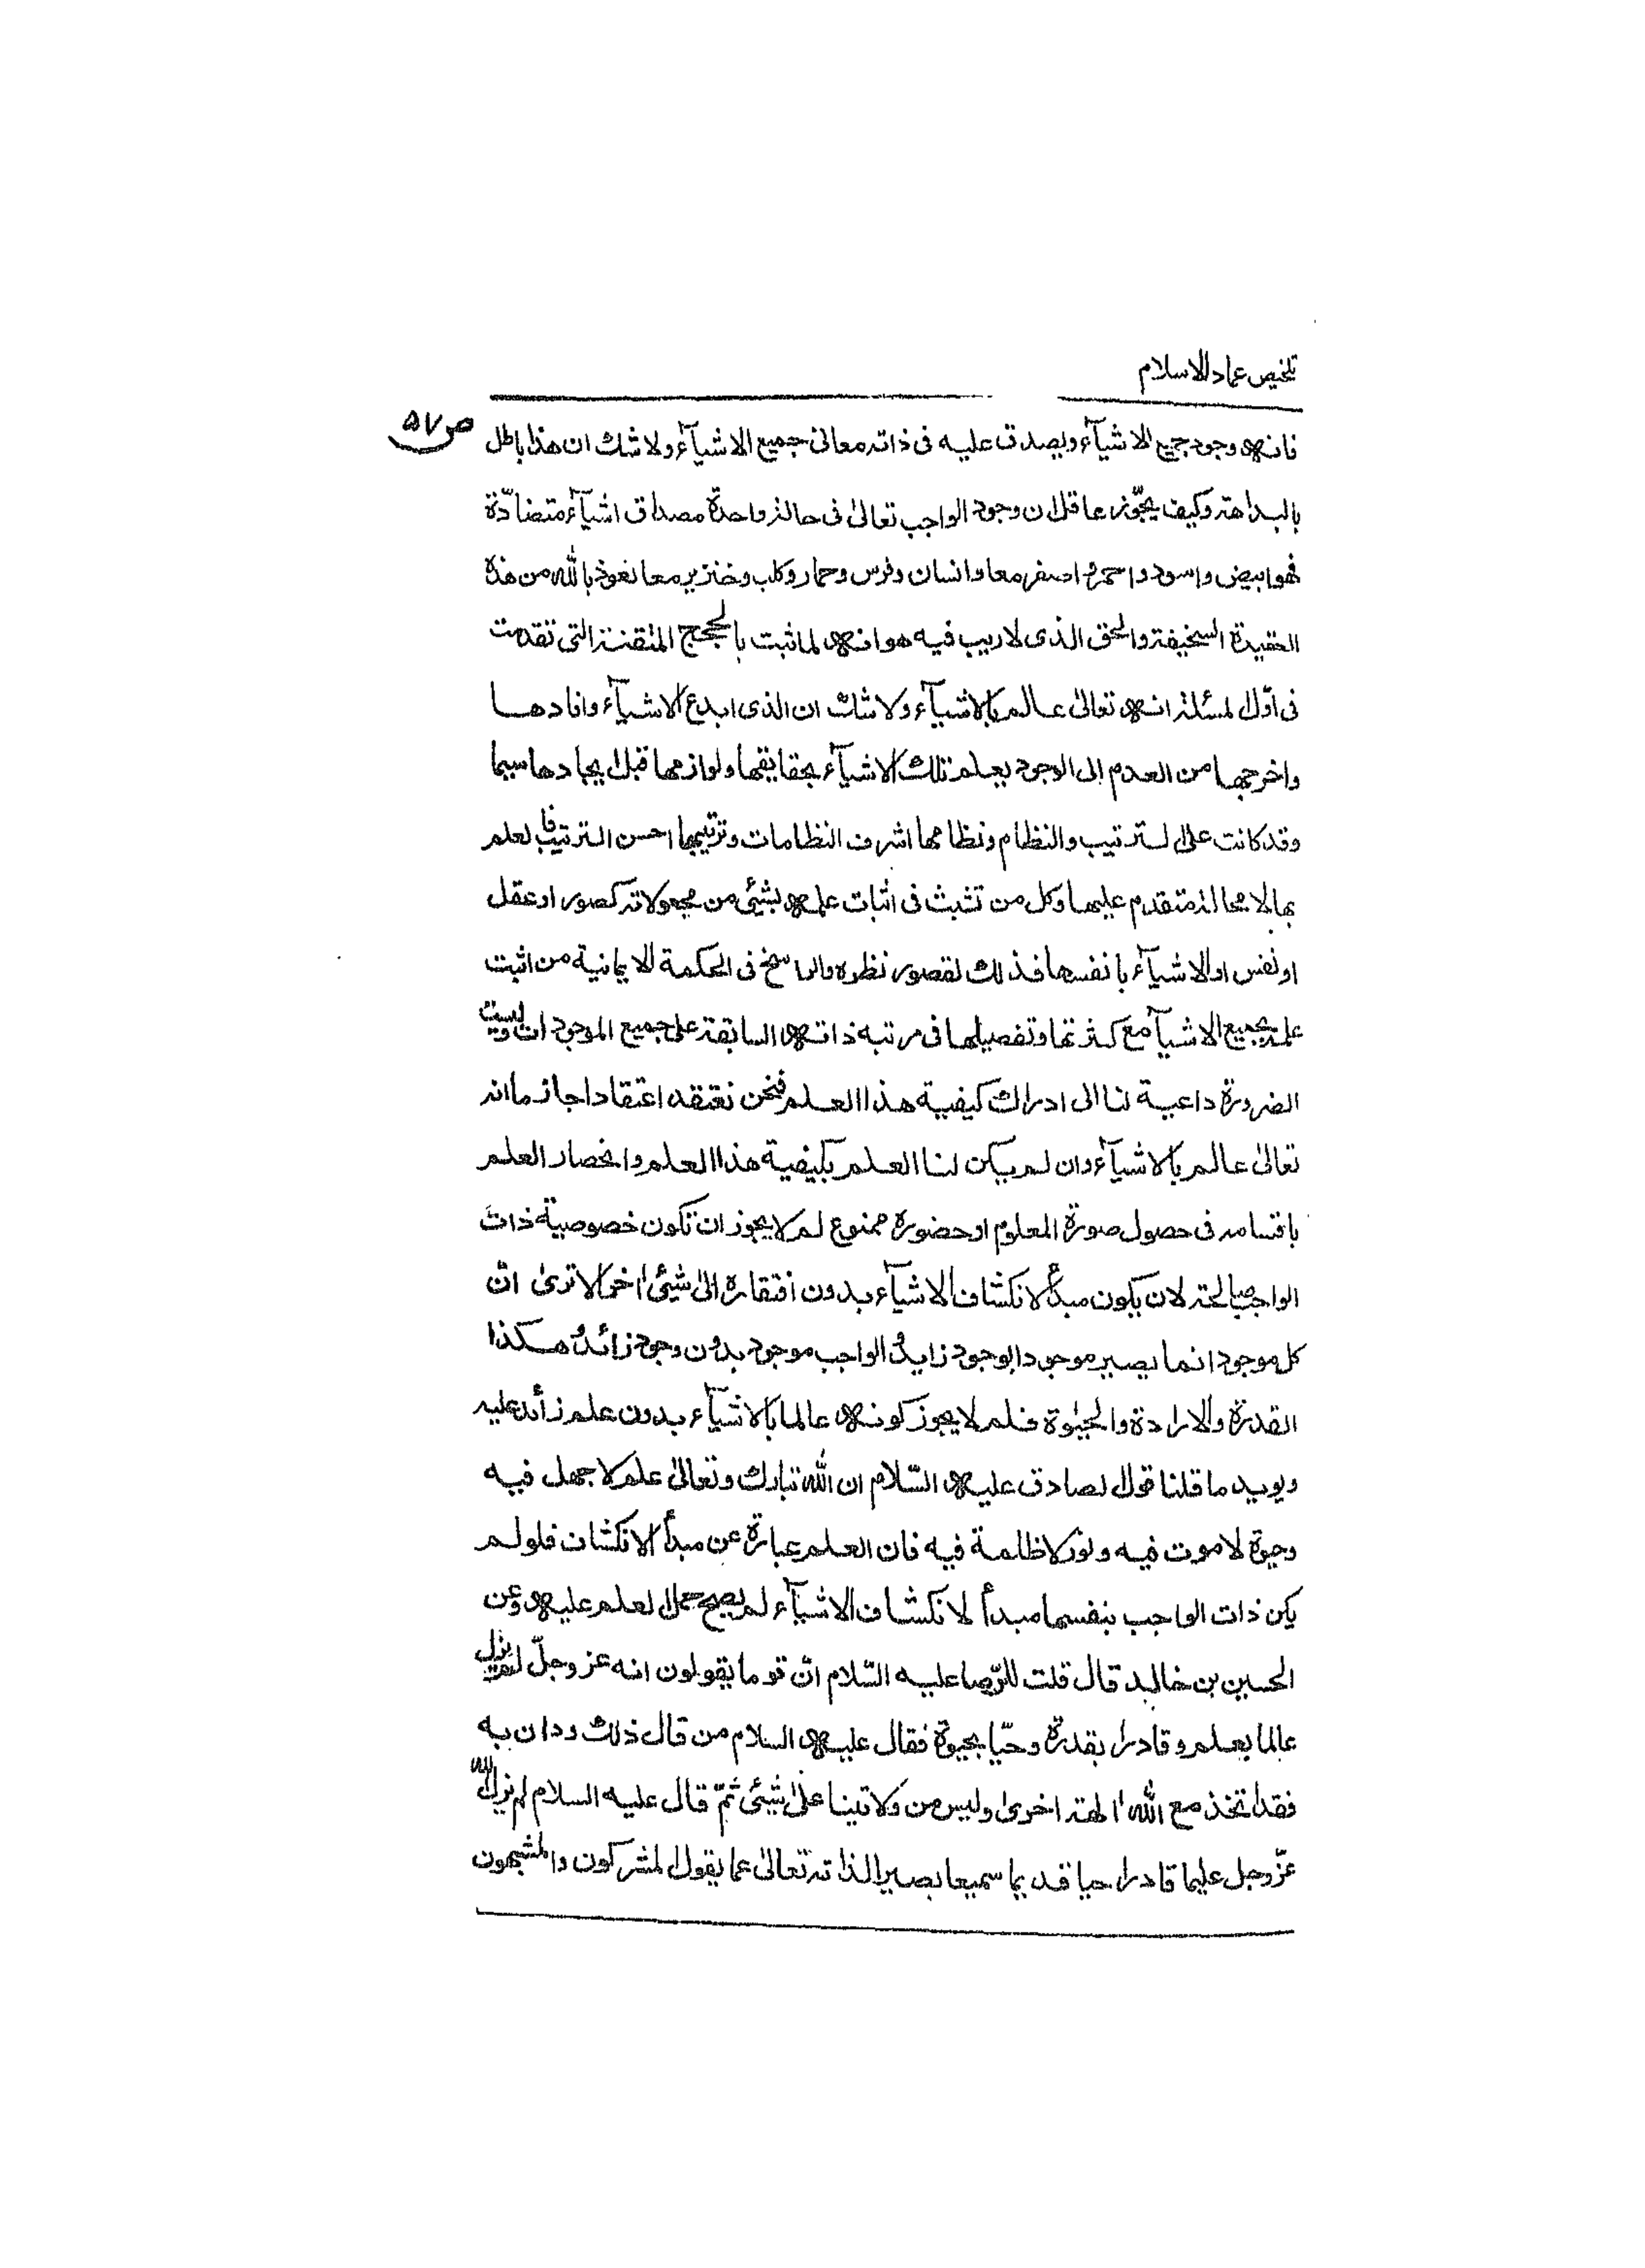 تلخيص عماد الاسلام
ص ۵۷
فانه وجود جميع الاشيآء ويصدق عليه فى ذاته معانى جميع الاشيآء ولا شك ان هذا باطل
بالبداهة وكيف يجّوز عاقل ان وجود الواجب تعالىٰ فى حالة واحدة مصداق اشيآء متضادّة
فهو ابيض واسود واحمر و اصفر معا وانسان وفرس وحمار وكلب وخنزير معا نعوذ بالله من هذه
العقيدة السخيفة والحق الذى لا ريب فيه هو انه لما ثبت بالحجج المتقنة التى تقدمت
فى اوّل المسئلة انه تعالىٰ عالم بالاشيآء ولا شك ان الذى ابدع الاشيآء وافادها
واخرجها من العدم الى الوجود يعلم تلك الاشيآء بحقايقها ولوازمها قبل ايجادها سيما
وقد كانت على الترتيب والنظام ونظامها اشرف النظامات وترتيبها احسن الترتيب فالعلم
بها لا محالة متقدم عليها وكل من تشبث فى اثبات علمه بشيئ من مجعولاته كصور او عقل
او نفس او الاشيآء بانفسها فذلك لقصور نظره والراسخ فى الحكمة الايمانية من اثبت
علمه بجميع الاشيآء مع كثرتها وتفصيلها فى مرتبه ذاته السابقة على جميع الموجودات وليست
الضرورة داعية لنا الى ادراك كيفية هذا العلم فنحن نعتقد اعتقادا جازما انه
تعالىٰ عالم بالاشيآء وان لم يكن لنا العلم بكيفية هذا العلم وانحصار العلم
باقسامه فى حصول صورة المعلوم او حضوره ممنوع لم لا يجوز ان تكون خصوصية ذات
الواجب صالحة لان يكون مبدأ لانكشاف الاشيآء بدون افتقاره الىٰ شيئ اخر الا ترىٰ انّ
كل موجود انما يصير موجودا بوجود زايد و الواجب موجود بدون وجود زائد و هكذا
القدرة والارادة والحيٰوة فلم لا يجوز كونه عالما بالاشيآء بدون علم زائد عليه
ويويد ما قلنا قول الصادق عليه السّلام ان الله تبارك وتعالىٰ علم لا جهل فيه
وحيوة لا موت فيه ونور لا ظلمة فيه فان العلم عبارة عن مبدأ الانكشاف فلو لم
يكن ذات الواجب بنفسها مبدأ لانكشاف الاشيآء لم يصح حمل العلم عليه وعن
الحسين بن خالد قال قلت للرّضا عليه السّلام انّ قوما يقولون انه عز وجلّ لم يزل
عالما بعلم وقادرا بقدرة وحيّا بحيوة فقال عليه السلام من قال ذلك ودان به
فقد اتخذ مع الله الهة اخرىٰ وليس من ولايتنا علىٰ شيئ ثمّ قال عليه السلام لم يزل الله
عزّ وجل عليما قادرا حيا قديما سميعا بصيرا لذاته تعالىٰ عما يقول المشركون والمشبهون